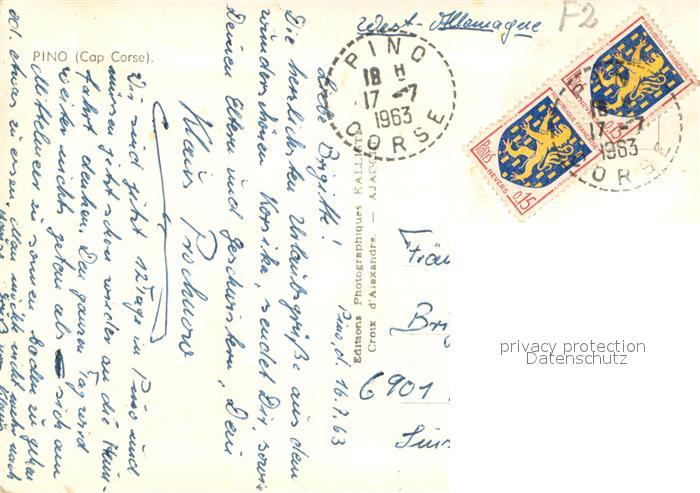 PINO (Cap Corse).
West-Allemagne
F2
PINO
18 H
17 -7
1963
CORSE
REPUBLIQUE FRANÇAISE
Postes
NEVERS
0,15
REPUBLIQUE FRANÇAISE
0,15
18
17 -7
1963
CORSE
Editions Photographiques KALLISTÉ
Croix d'Alexandre. — AJACCIO
Pino, d. 16.7.63
Liebe Brigitte!
Die herzlichsten Urlaubsgrüße aus dem
wunderschönen Korsika, sendet Dir, sowie
Deinen Eltern und Geschwistern, Dein
Klaus
Wir sind jetzt 12 Tage in Pino und
müssen jetzt schon wieder an die Heim-
fahrt denken. Den ganzen Tag wird
weiter nichts getan als sich am
Mittelmeer zu sonnen, baden zu gehen
od. etwas zu essen. Man möchte nicht mehr nach
Hause
6901
privacy protection
Datenschutz